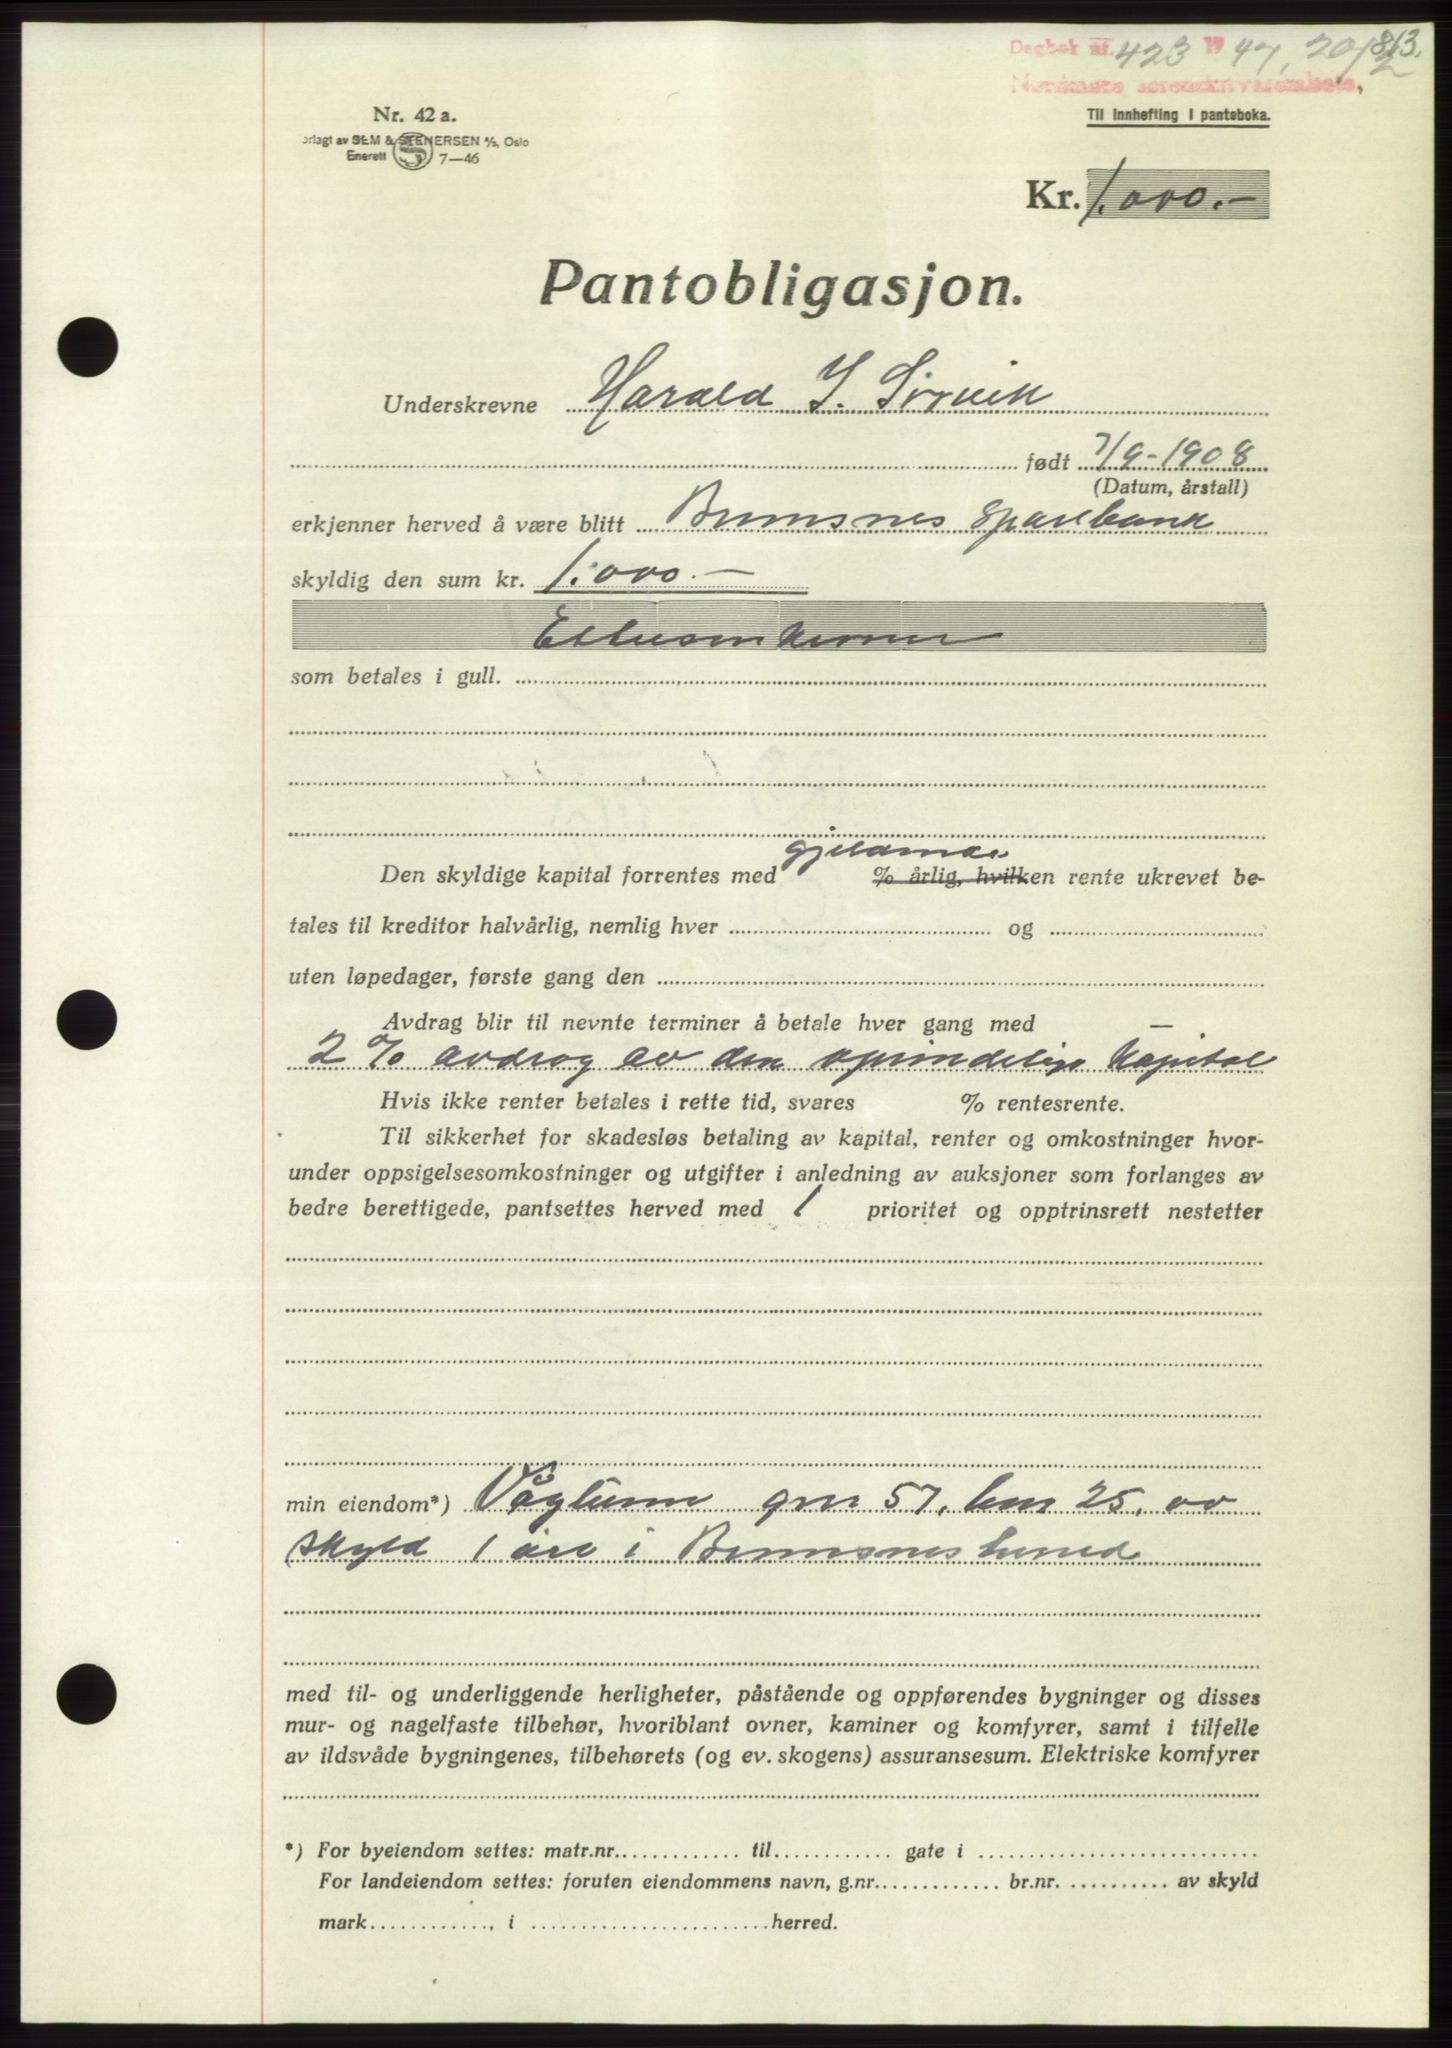 Dagbok nr. 423 1947, 20/2
813.
Nordmøre sorenskriverembete.
Nr. 42 a.
orlagt av SEM & STENERSEN A/S, Oslo
Enerett 7—46
Til innhefting i panteboka.
Kr. 1.000.-
Pantobligasjon.
Underskrevne Harald I. Sirvik
født 7/9-1908
(Datum, årstall)
erkjenner herved å være blitt Bremsnes Sparebank
skyldig den sum kr. 1.000.—
Ettusen kroner
som betales i gull.
gjeldende
Den skyldige kapital forrentes med % årlig, hvilken rente ukrevet be-
tales til kreditor halvårlig, nemlig hver og
uten løpedager, første gang den
Avdrag blir til nevnte terminer å betale hver gang med —
2 % avdrag av den oprindelige kapital
Hvis ikke renter betales i rette tid, svares % rentesrente.
Til sikkerhet for skadesløs betaling av kapital, renter og omkostninger hvor-
under oppsigelsesomkostninger og utgifter i anledning av auksjoner som forlanges av
bedre berettigede, pantsettes herved med 1 prioritet og opptrinsrett nestetter
min eiendom*) Vågtun gnr 57, bnr 25, av
skyld 1 øre i Bremsnes herred
med til- og underliggende herligheter, påstående og oppførendes bygninger og disses
mur- og nagelfaste tilbehør, hvoriblant ovner, kaminer og komfyrer, samt i tilfelle
av ildsvåde bygningenes, tilbehørets (og ev. skogens) assuransesum. Elektriske komfyrer
*) For byeiendom settes: matr.nr. til gate i
For landeiendom settes: foruten eiendommens navn, g.nr. br.nr. av skyld
mark , i herred.